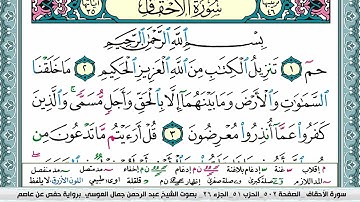 سُورَةُ الأَحْقَافِ
بِسْمِ اللَّهِ الرَّحْمَٰنِ الرَّحِيمِ
حمٓ ١ تَنزِيلُ ٱلْكِتَٰبِ مِنَ ٱللَّهِ ٱلْعَزِيزِ ٱلْحَكِيمِ ٢ مَا خَلَقْنَا
ٱلسَّمَٰوَٰتِ وَٱلْأَرْضَ وَمَا بَيْنَهُمَآ إِلَّا بِٱلْحَقِّ وَأَجَلٍ مُّسَمًّى ۚ وَٱلَّذِينَ
كَفَرُوا۟ عَمَّآ أُنذِرُوا۟ مُعْرِضُونَ ٣ قُلْ أَرَءَيْتُم مَّا تَدْعُونَ مِن
سورة الأحقاف. الصفحة ٥٠٢ الحزب ٥١ الجزء ٢٦ بصوت الشيخ عبد الرحمن جمال العوسي. برواية حفص عن عاصم